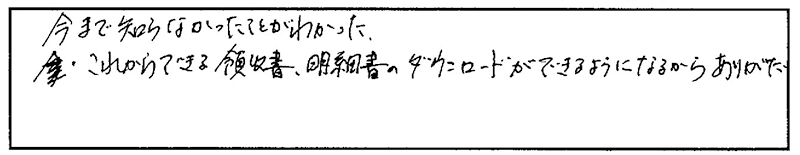 今まで知らなかったことがわかった、
・これからできる領収書、明細書のダウンロードができるようになるからありがたい